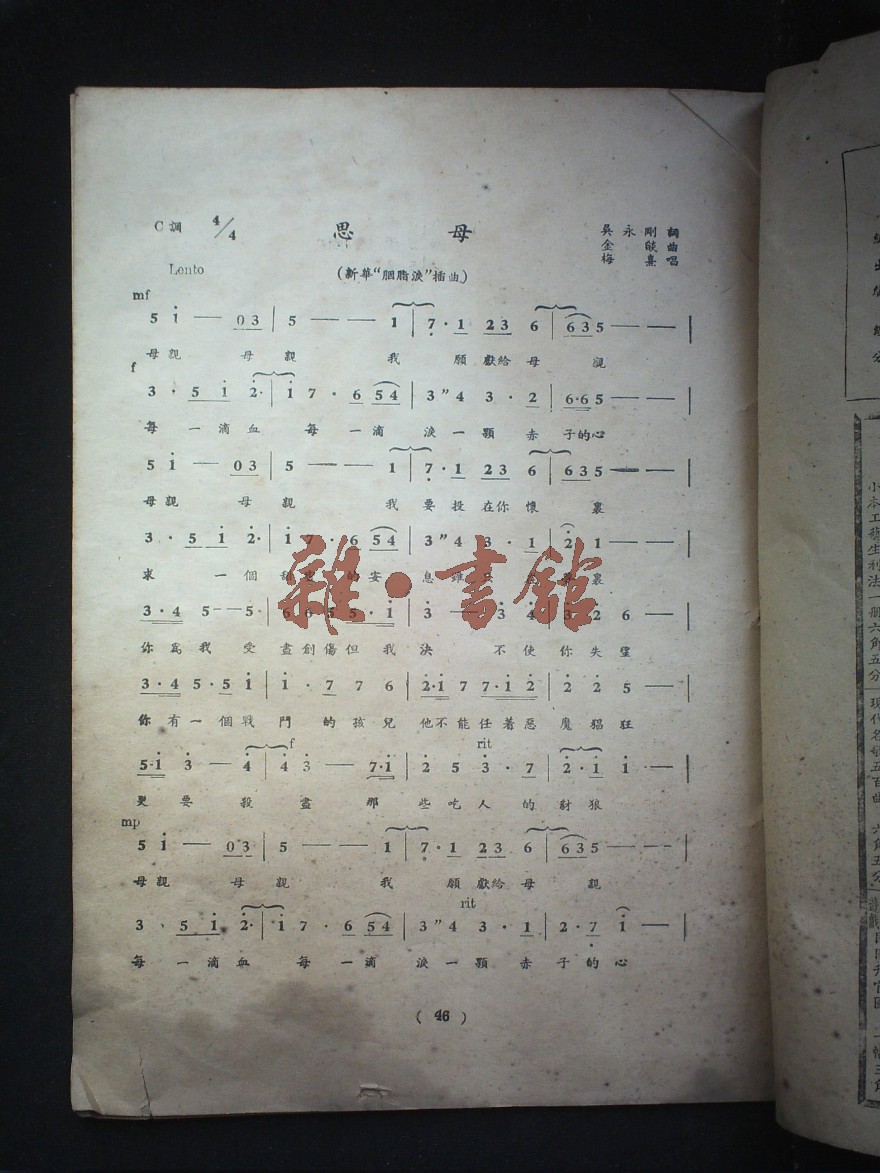 C調 4/4 思母 吳永剛詞
金燄曲
梅熹唱
Lento (新華“胭脂淚”插曲)
mf
5 i — 0 3 | 5 — — 1 | 7 · 1 2 3 6 | 6 3 5 — — |
母親 母親 我 願獻給母 親
f
3 · 5 i 2· | i 7 · 6 5 4 | 3 " 4 3 · 2 | 6·6 5 — — |
每一滴血每一滴淚一顆赤子的心
5 i — 0 3 | 5 — — 1 | 7 · 1 2 3 6 | 6 3 5 — — |
母親 母親 我 要投在你懷 裏
3 · 5 i 2· | i 7 · 6 5 4 | 3 " 4 3 · 1 | 2 1 — — |
求一個 的安息 裏
3·4 5 5 — 5 | 5 · 1 | 3 — 3 4 | 3 2 6 — |
你為我受盡創傷但我決 不使你失望
3·4 5·5 i | i · 7 7 6 | 2·i 7 7·i 2 | 2 2 5 — |
你有一個戰鬥的孩兒他不能任着惡魔猖狂
f rit
5·i 3 — 4 | 4 3 — 7·i | 2 5 3 · 7 | 2 · i i · — |
更要殺盡那些吃人的豺狼
mp
5 i — 0 3 | 5 — — 1 | 7 · 1 2 3 6 | 6 3 5 — — |
母親 母親 我 願獻給母 親
rit
3 · 5 i 2· | i 7 · 6 5 4 | 3 " 4 3 · | 2 · 7 i — |
每一滴血每一滴淚一顆赤子的心
( 46 )
雜·書館
小本工藝生利法一冊六角五分
現代名歌五百曲 六角五分